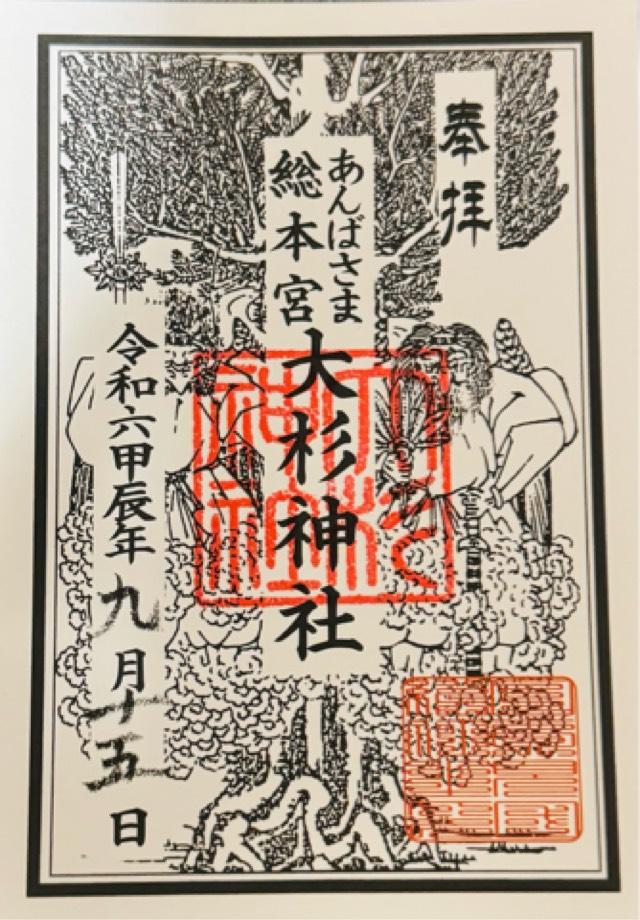 奉拝
あんばさま
総本宮大杉神社
令和六甲辰年九月十五日
大杉神社